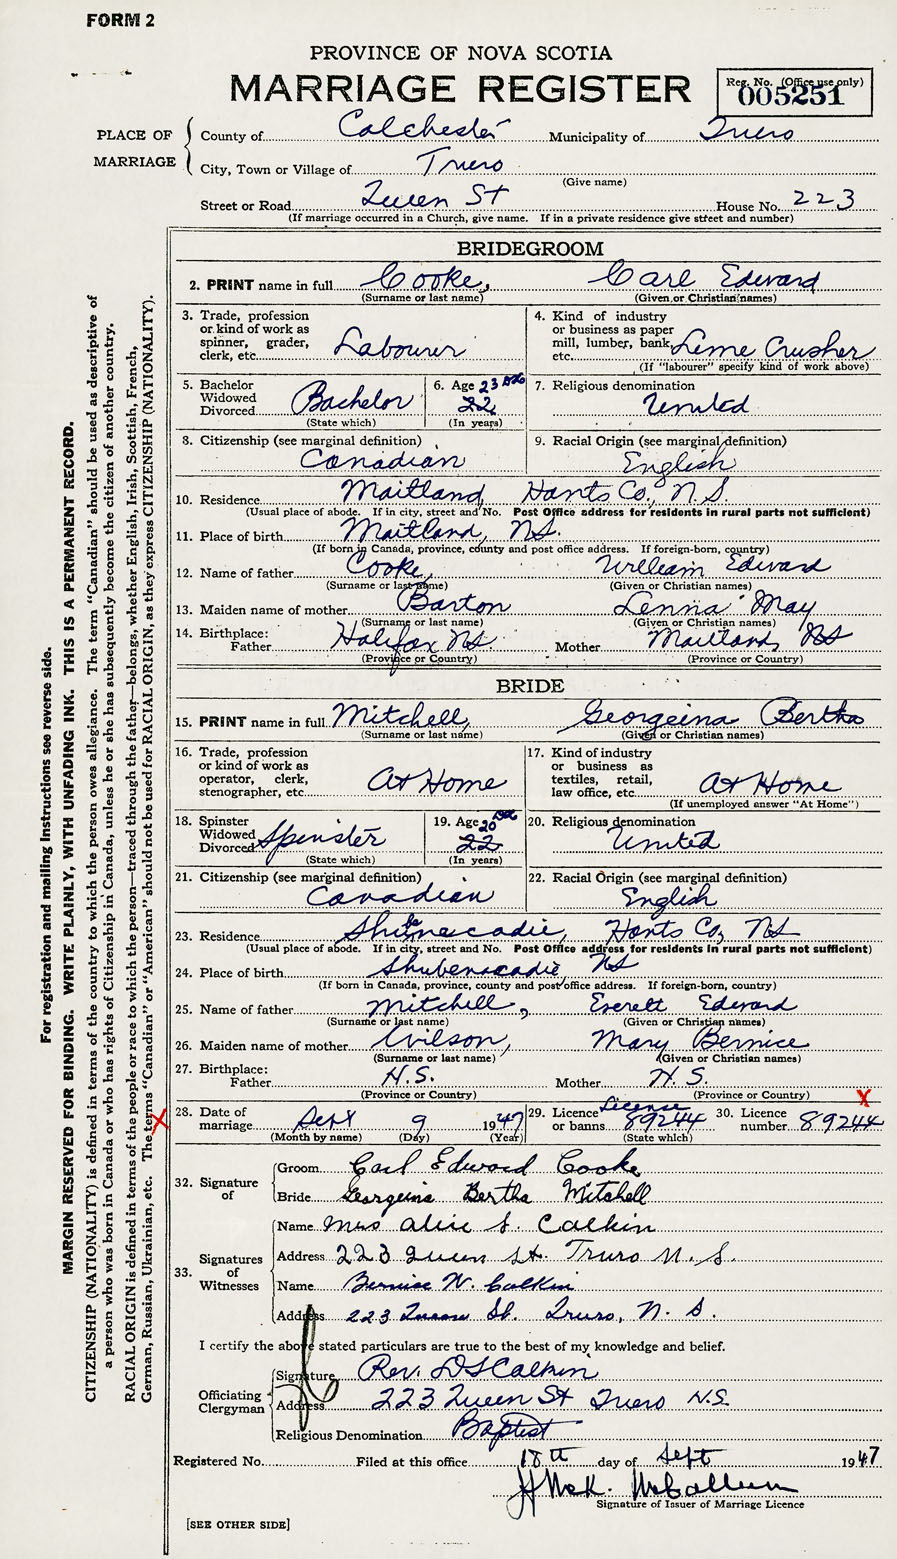 FORM 2
PROVINCE OF NOVA SCOTIA
MARRIAGE REGISTER
Reg. No. (Office use only)
005251
PLACE OF MARRIAGE
County of Colchester Municipality of Truro
City, Town or Village of Truro
(Give name)
Street or Road Queen St House No. 223
(If marriage occurred in a Church, give name. If in a private residence give street and number)
BRIDEGROOM
2. PRINT name in full Cooke, Carl Edward
(Surname or last name) (Given or Christian names)
3. Trade, profession or kind of work as spinner, grader, clerk, etc. Labourer
4. Kind of industry or business as paper mill, lumber, bank, etc. Lime Crusher
(If "labourer" specify kind of work above)
5. Bachelor Widowed Divorced Bachelor
(State which)
6. Age 23 22
(In years)
7. Religious denomination
United
8. Citizenship (see marginal definition)
Canadian
9. Racial Origin (see marginal definition)
English
10. Residence Maitland, Hants Co., N.S.
(Usual place of abode. If in city, street and No. Post Office address for residents in rural parts not sufficient)
11. Place of birth Maitland, NS.
(If born in Canada, province, county and post office address. If foreign-born, country)
12. Name of father Cooke, William Edward
(Surname or last name) (Given or Christian names)
13. Maiden name of mother Barton Lenna May
(Surname or last name) (Given or Christian names)
14. Birthplace:
Father Halifax NS. Mother Maitland, NS
(Province or Country) (Province or Country)
BRIDE
15. PRINT name in full Mitchell, Georgeina Bertha
(Surname or last name) (Given or Christian names)
16. Trade, profession or kind of work as operator, clerk, stenographer, etc. At Home
17. Kind of industry or business as textiles, retail, law office, etc. At Home
(If unemployed answer "At Home")
18. Spinster Widowed Divorced Spinster
(State which)
19. Age 20 22
(In years)
20. Religious denomination
United
21. Citizenship (see marginal definition)
Canadian
22. Racial Origin (see marginal definition)
English
23. Residence Shubenacadie, Hants Co, NS
(Usual place of abode. If in city, street and No. Post Office address for residents in rural parts not sufficient)
24. Place of birth Shubenacadie, NS
(If born in Canada, province, county and post office address. If foreign-born, country)
25. Name of father Mitchell, Everett Edward
(Surname or last name) (Given or Christian names)
26. Maiden name of mother Wilson, Mary Bernice
(Surname or last name) (Given or Christian names)
27. Birthplace:
Father N.S. Mother N.S.
(Province or Country) (Province or Country)
X X
28. Date of marriage Sept 9 1947
(Month by name) (Day) (Year)
29. Licence or banns License 89244
(State which)
30. Licence number 89244
32. Signature of
Groom Carl Edward Cooke
Bride Georgeina Bertha Mitchell
33. Signatures of Witnesses
Name Mrs Alice S. Calkin
Address 223 Queen St. Truro N.S.
Name Bernice W. Calkin
Address 223 Queen St. Truro, N.S.
I certify the above stated particulars are true to the best of my knowledge and belief.
Officiating Clergyman
Signature Rev. D S Calkin
Address 223 Queen St Truro N.S.
Religious Denomination Baptist
Registered No. Filed at this office 18th day of Sept 1947
Signature of Issuer of Marriage Licence
[SEE OTHER SIDE]
For registration and mailing instructions see reverse side.
MARGIN RESERVED FOR BINDING. WRITE PLAINLY, WITH UNFADING INK. THIS IS A PERMANENT RECORD.
CITIZENSHIP (NATIONALITY) is defined in terms of the country to which the person owes allegiance. The term "Canadian" should be used as descriptive of
a person who was born in Canada or who has rights of Citizenship in Canada, unless he or she has subsequently become the citizen of another country.
RACIAL ORIGIN is defined in terms of the people or race to which the person—traced through the father—belongs, whether English, Irish, Scottish, French,
German, Russian, Ukrainian, etc. The terms "Canadian" or "American" should not be used for RACIAL ORIGIN, as they express CITIZENSHIP (NATIONALITY).